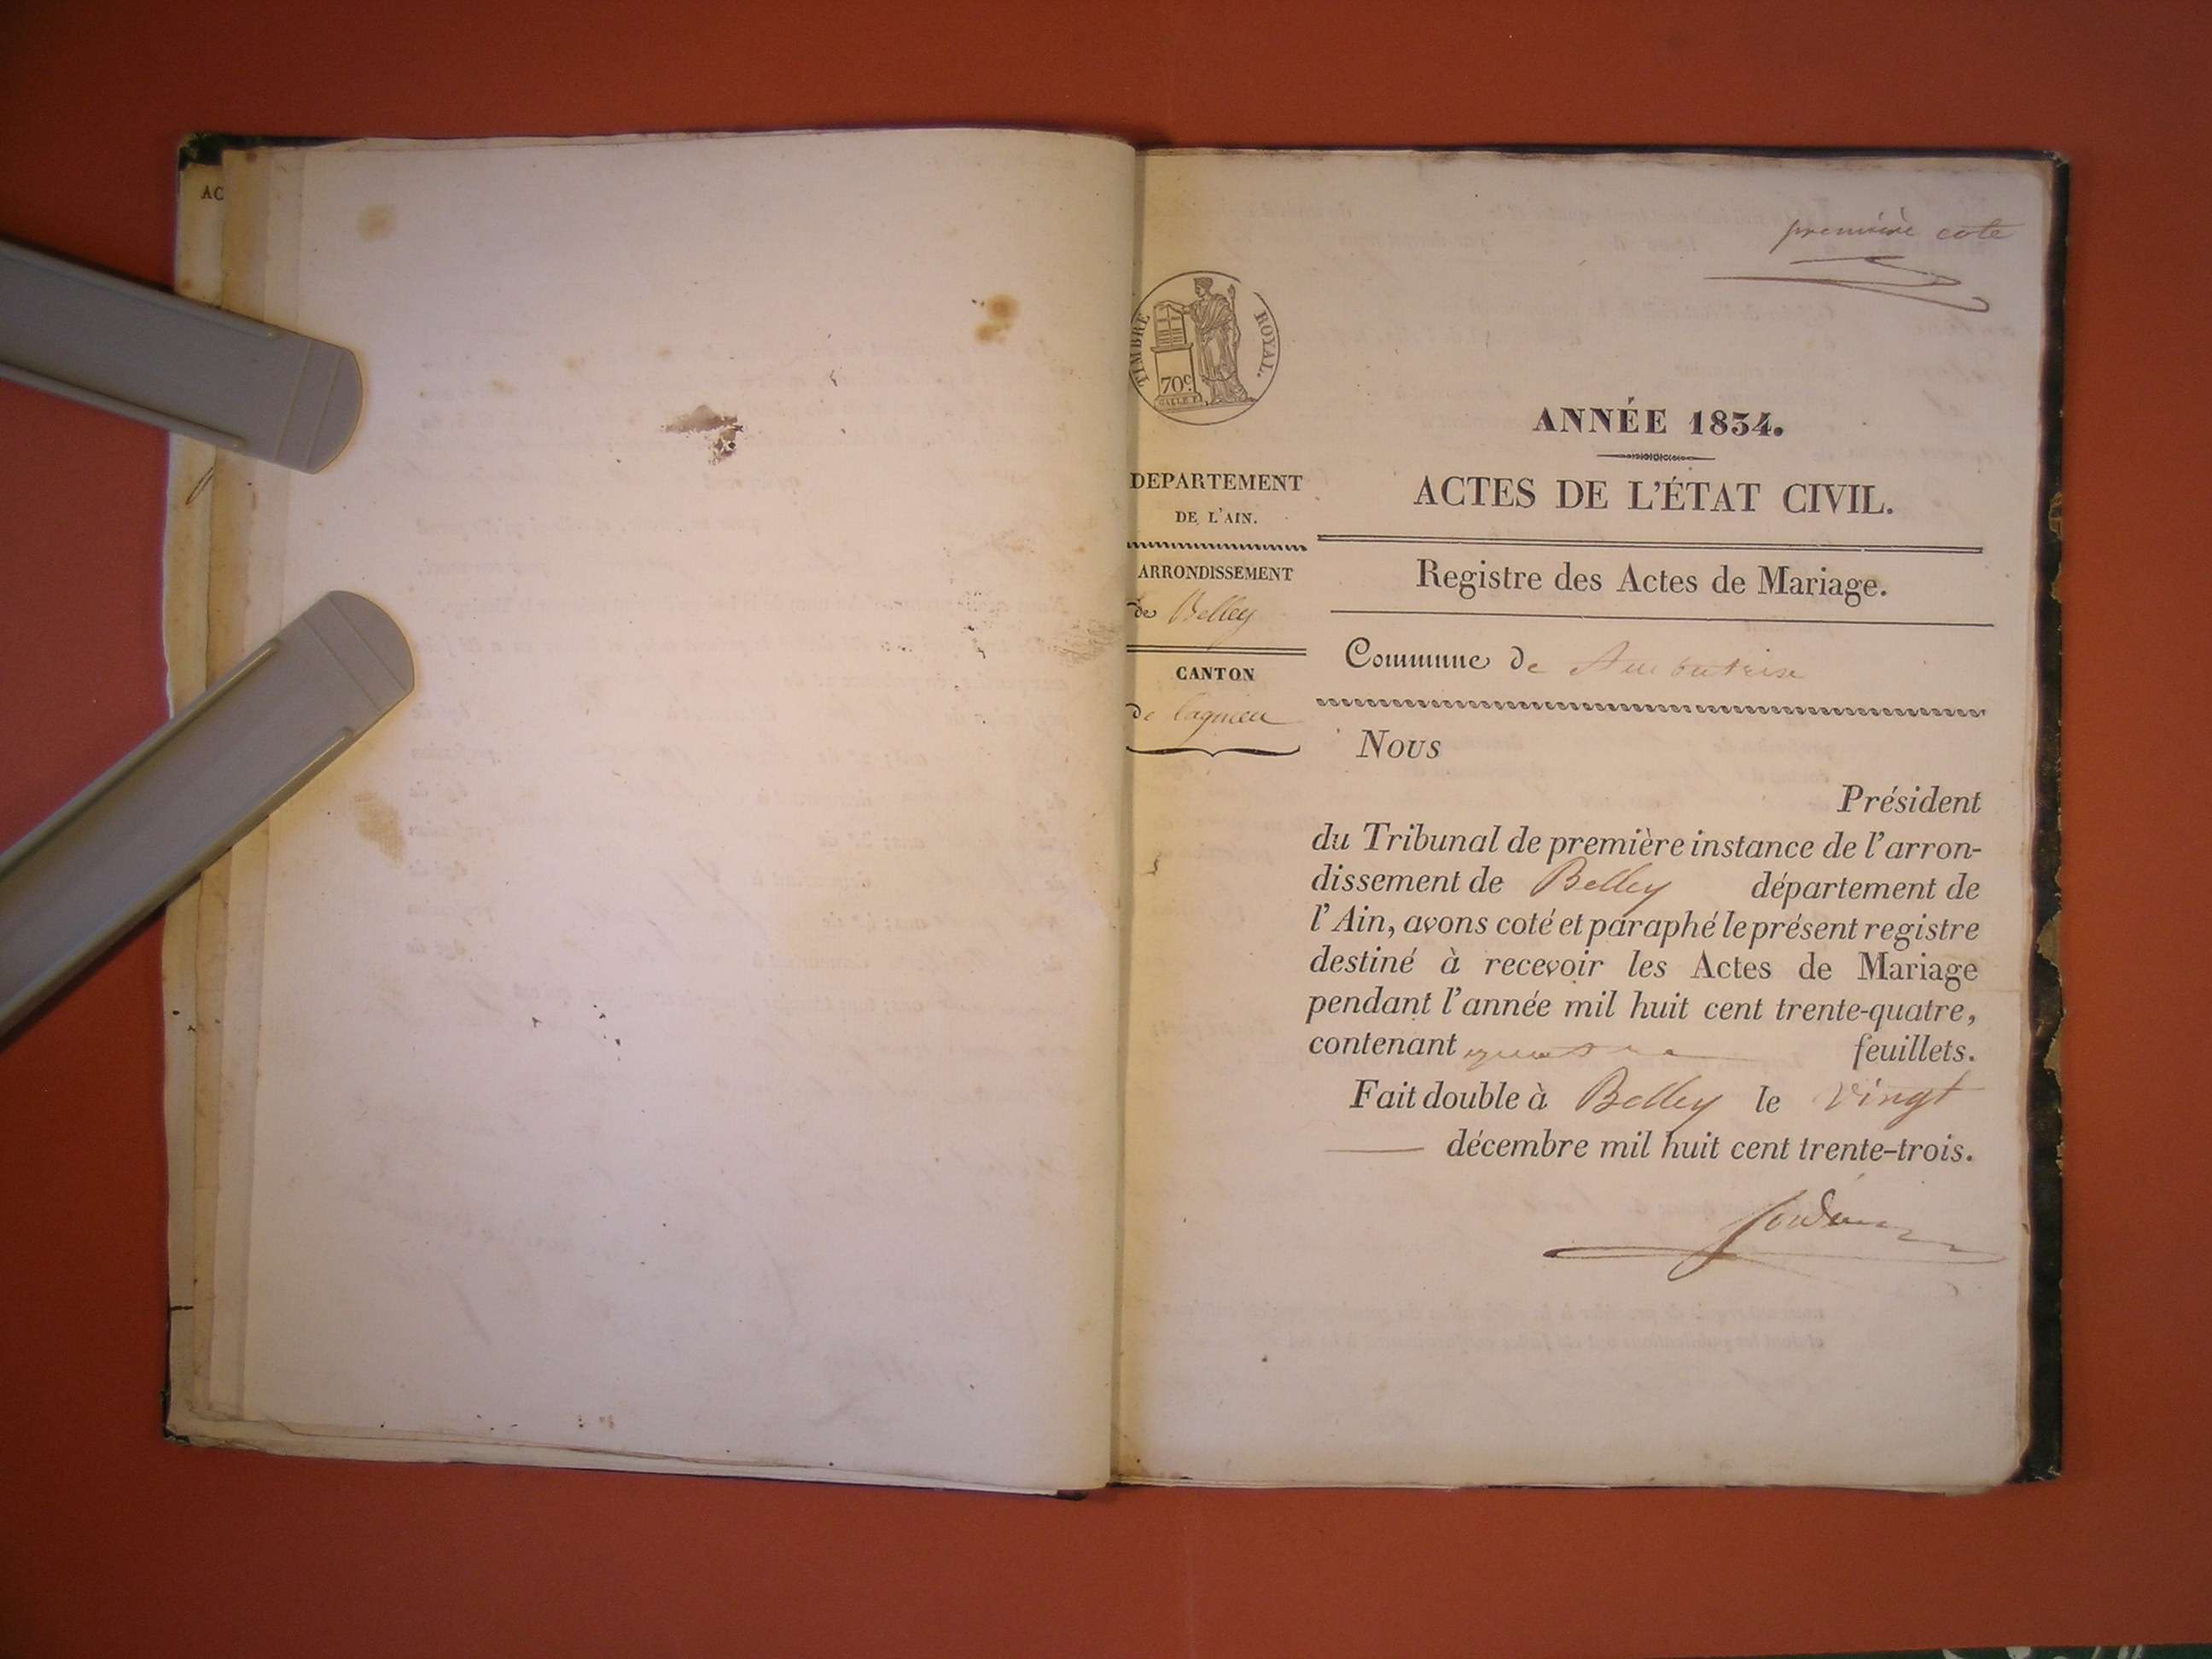 AC
première cote
TIMBRE ROYAL.
70c.
ANNÉE 1834.
ACTES DE L'ÉTAT CIVIL.
Registre des Actes de Mariage.
Commune de Ambutrix
DEPARTEMENT
DE L'AIN.
ARRONDISSEMENT
de Belley
CANTON
de Lagnieu
Nous
Président
du Tribunal de première instance de l'arron-
dissement de Belley département de
l'Ain, avons coté et paraphé le présent registre
destiné à recevoir les Actes de Mariage
pendant l'année mil huit cent trente-quatre,
contenant quatre feuillets.
Fait double à Belley le vingt
décembre mil huit cent trente-trois.